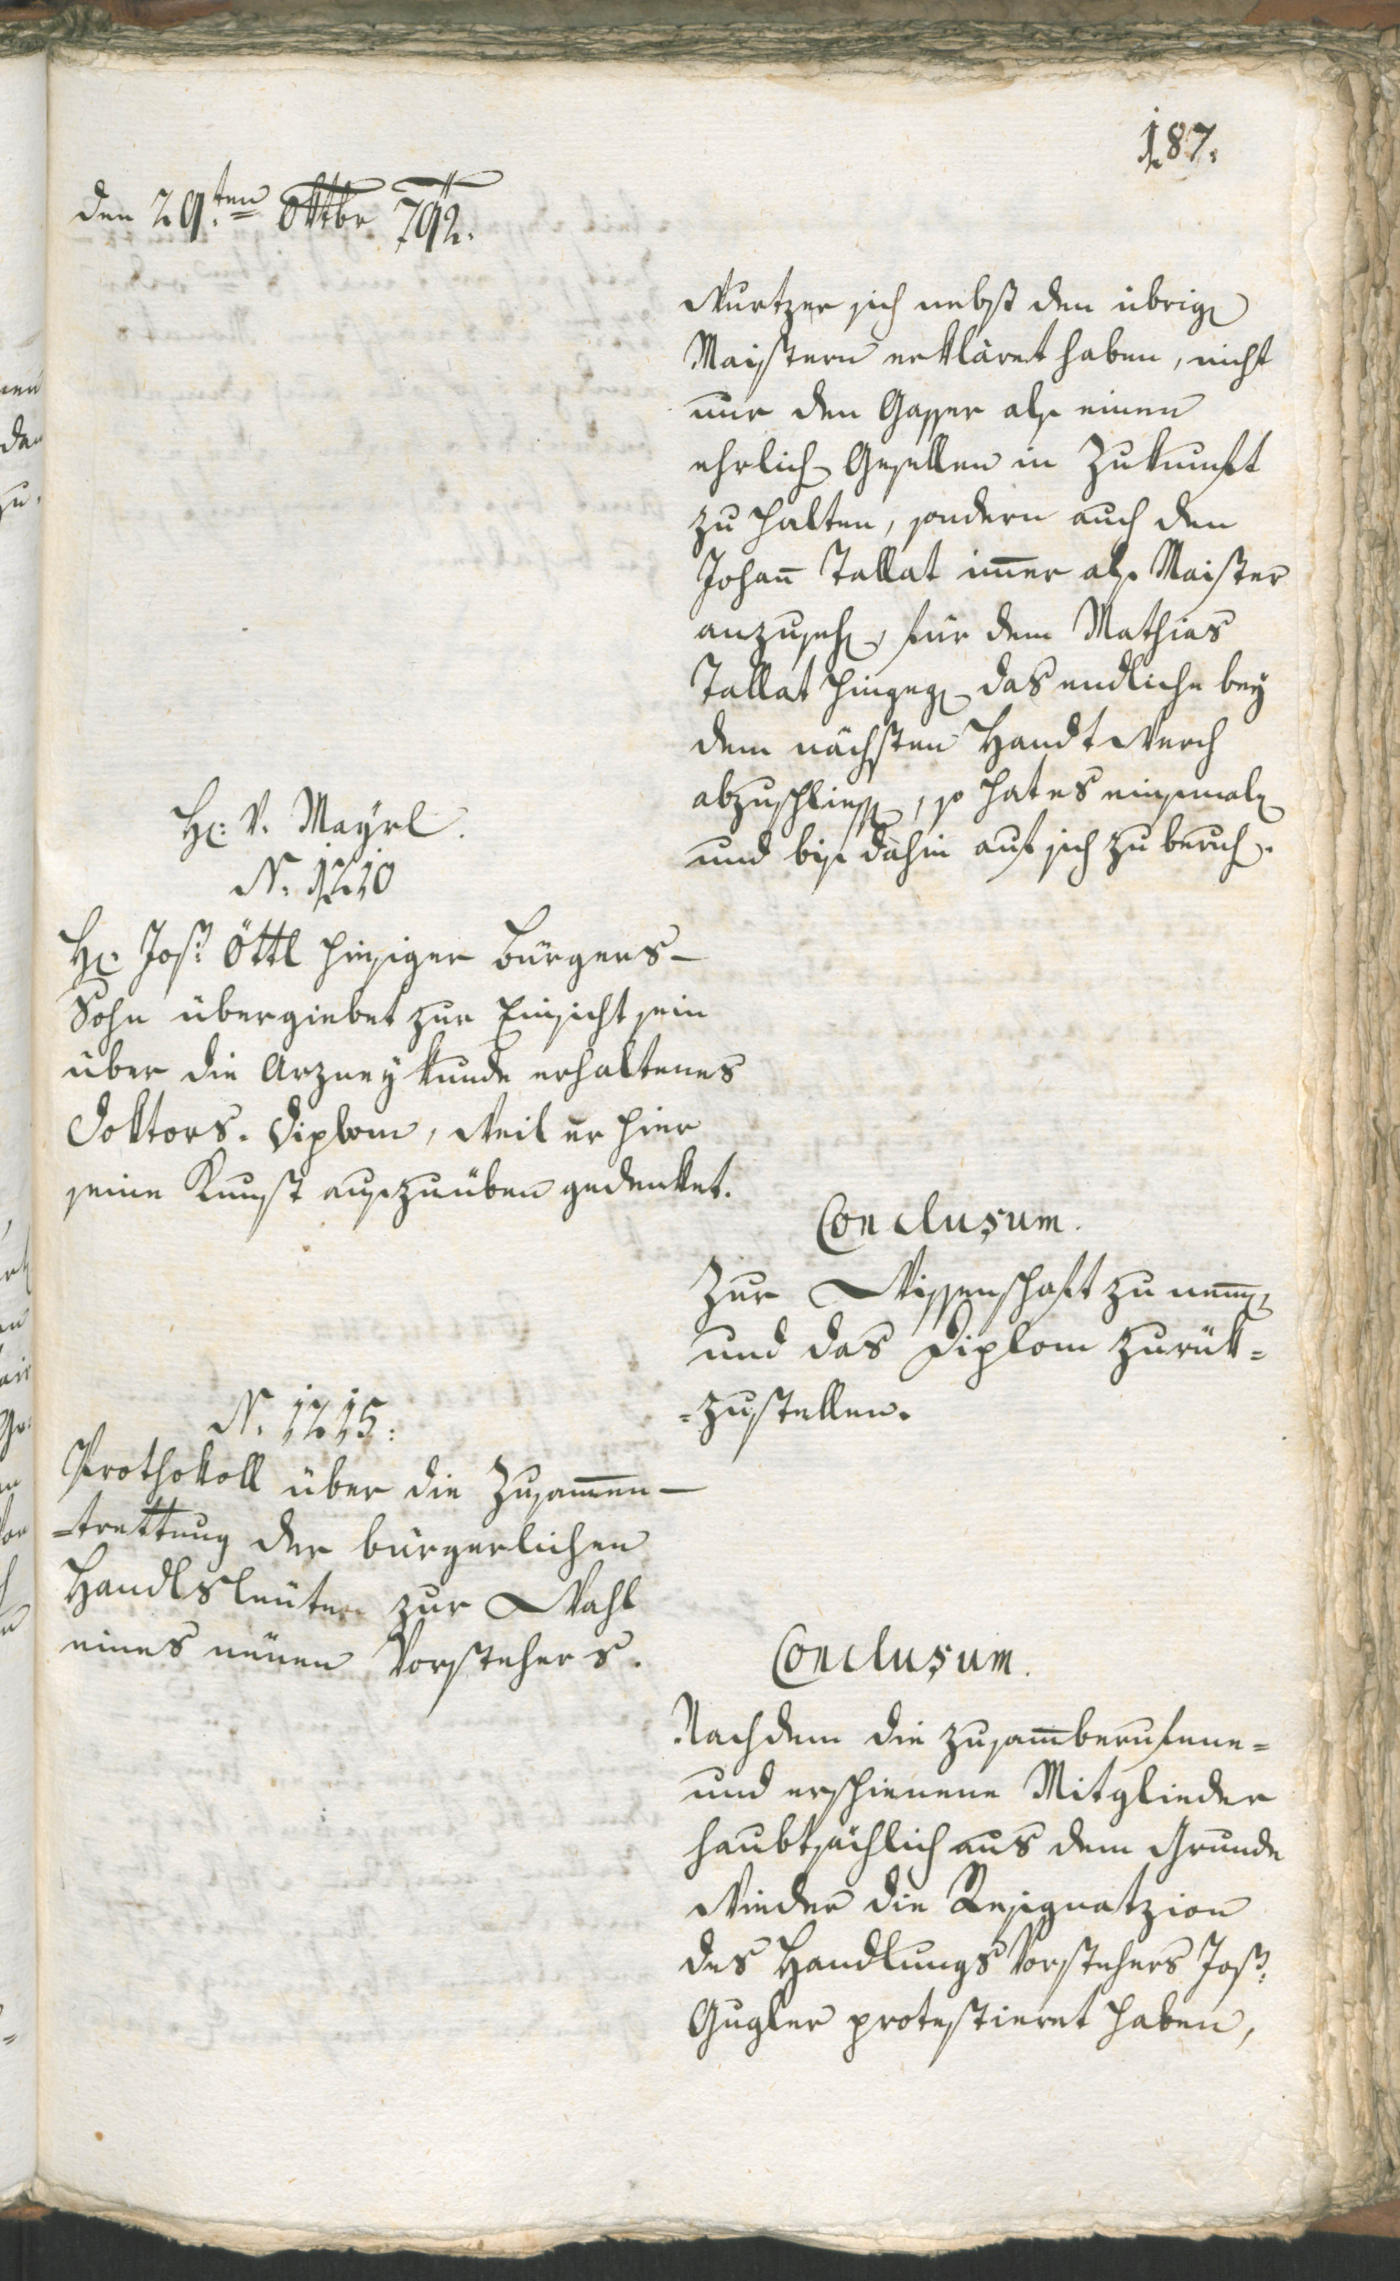 187.
den 29.ten Oktbr 792.
Wurtzer sich nebst den übrigen
Maistern erkläret haben, nicht
nur den Gasser als einen
ehrlichen Gesellen in Zukunft
zu halten, sondern auch den
Johan̄ Tallat im̄er als Maister
anzusehen, für dem Mathias
Tallat hingegen das endliche bey
dem nächsten Handtwerch
abzuschliessen, so hat es einsmalen
und bis dahin auf sich zu beruhen.
H: v. Mayrl.
N. 1210
H: Jos: Öttl hiesiger Bürgers-
Sohn übergiebet zur Einsicht sein
über die Arzneykunde erhaltenes
Doktors-Diplom, weil er hier
seine Kunst auszuüben gedenket.
Conclusum.
Zur Wissenschaft zu nem̄en
und das Diplom zurük=
=zustellen.
N. 1215:
Prothokoll über die Zusam̄en-
=trettung der bürgerlichen
Handlsleüten zur Wahl
eines neüen Vorstehers.
Conclusum.
Nachdem die zusam̄berufene=
und erschienene Mitglieder
haubtsächlich aus dem Grunde
wieder die Resignatzion
des Handlungs Vorstehers Jos:
Gugler protestieret haben,